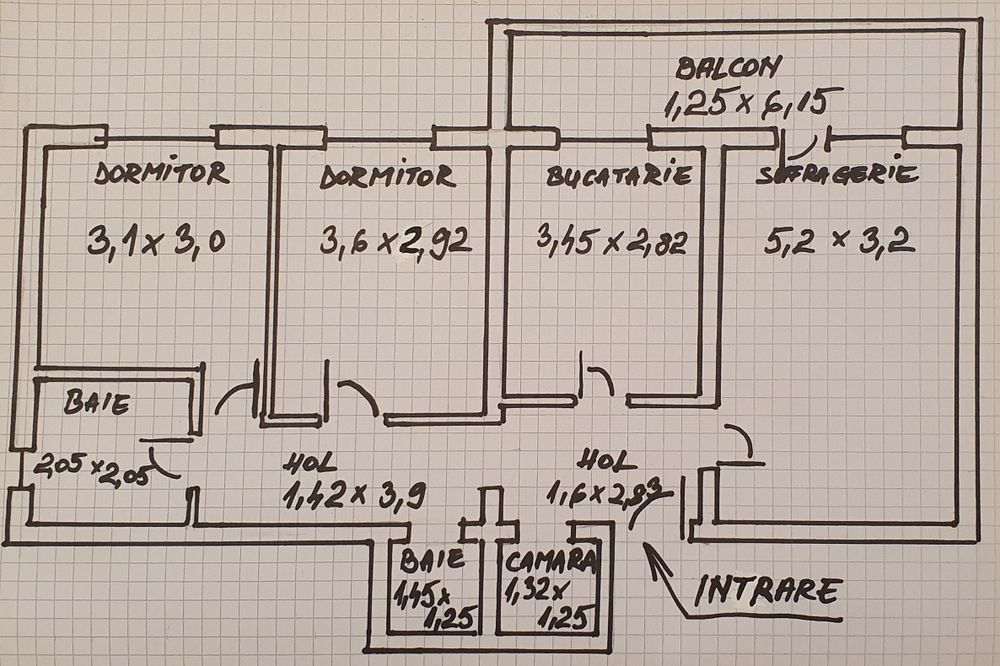 BALCON
1,25 x 6,15
DORMITOR
3,1 x 3,0
DORMITOR
3,6 x 2,92
BUCATARIE
3,45 x 2,82
SUFRAGERIE
5,2 x 3,2
BAIE
2,05 x 2,05
HOL
1,42 x 3,9
HOL
1,6 x 2,83
BAIE
1,45 x
1,25
CAMARA
1,32 x
1,25
INTRARE